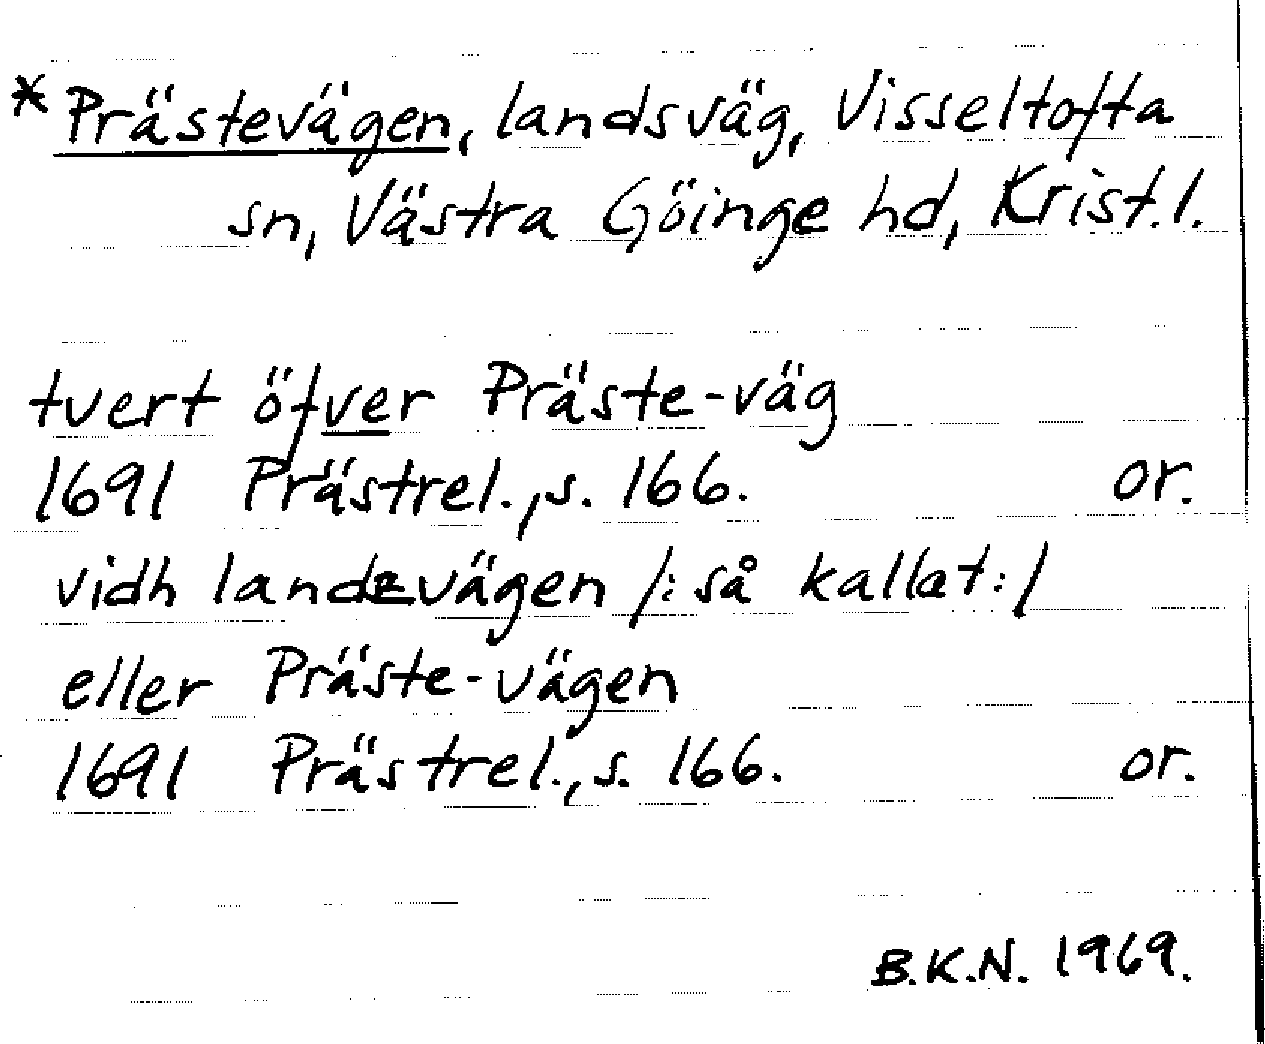 * Prästevägen, landsväg, Visseltofta
sn, Västra Göinge hd, Krist. l.
tvert öfver Präste-väg
1691 Prästrel., s. 166. or.
vidh landzvägen /: så kallat :/
eller Präste-vägen
1691 Prästrel., s. 166. or.
B.K.N. 1969.